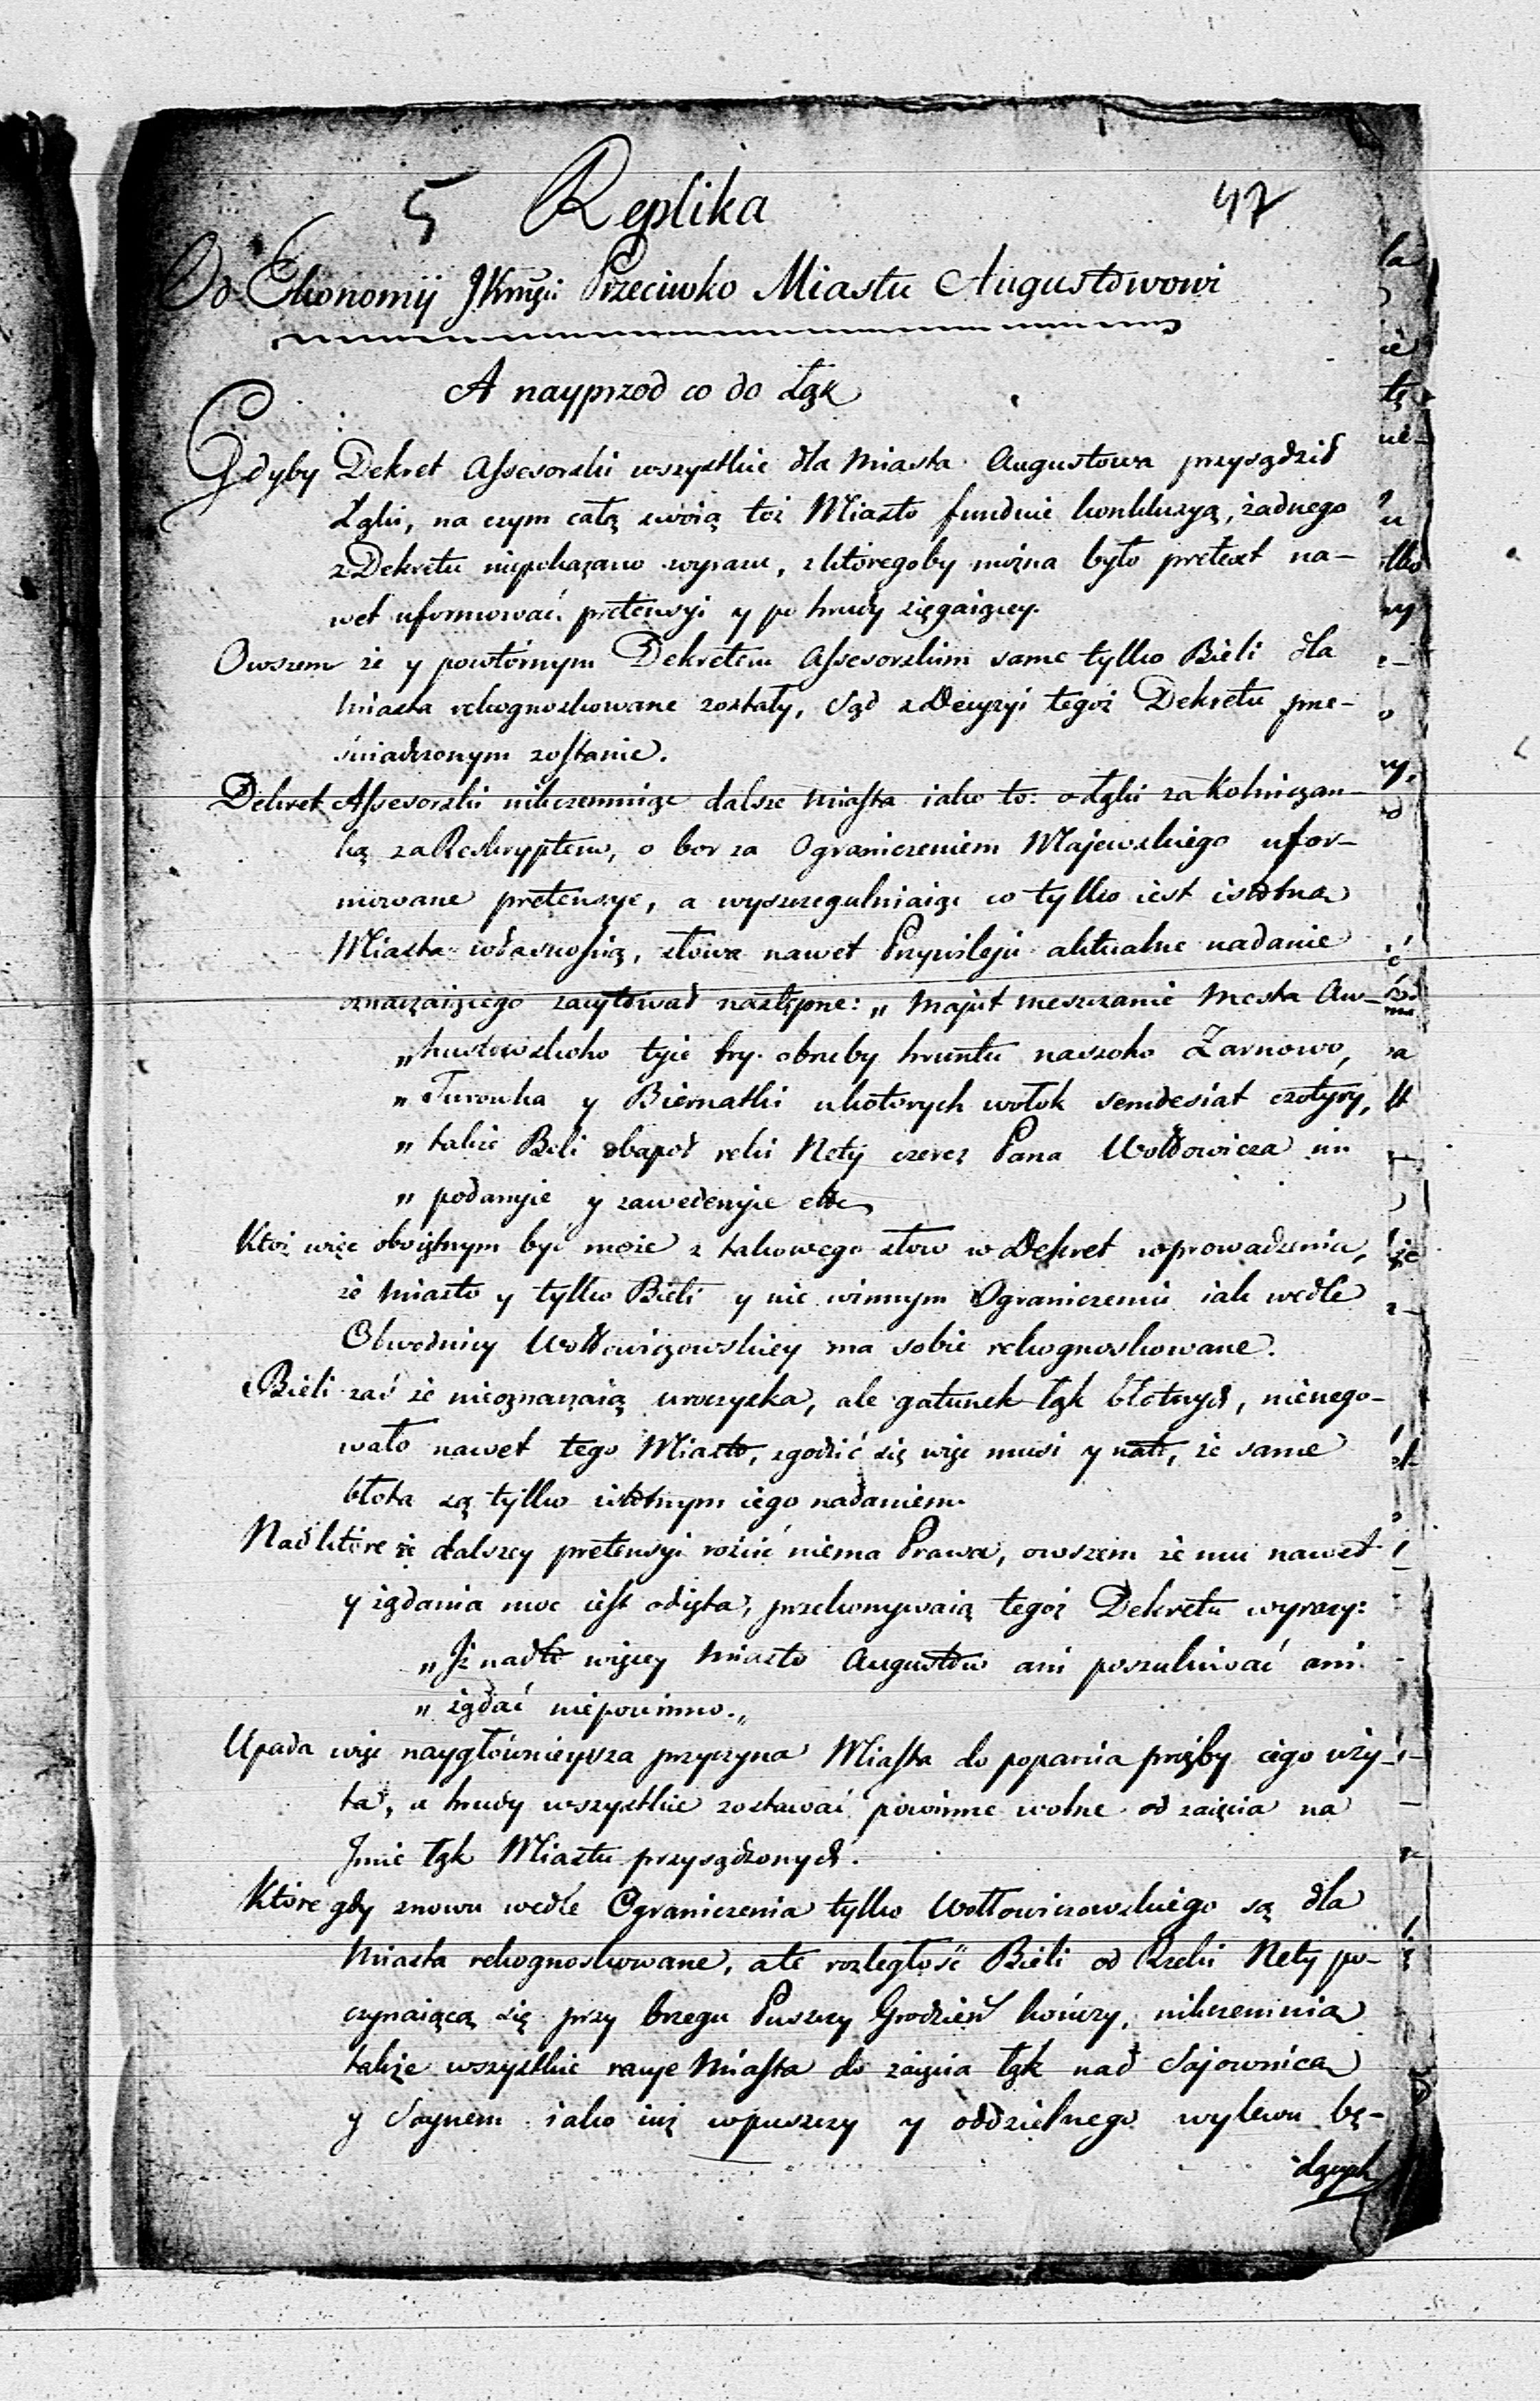 5 Replika 47
Od Ekonomij JKmści Przeciwko Miastu Augustowowi
A nayprzod co do Łąk
Gdyby Dekret Assesorski wszystkie dla Miasta Augustowa przysądził
Łąki, na czym całą swoią toż Miasto funduie konkluzyą, żadnego
z Dekretu niepokazano wyrazu, z ktoregoby można było pretext na-
wet uformować pretensyi y po hrudy sięgaiącey.
Owszem że y powtórnym Dekretem Assesorskim same tylko Bieli dla
Miasta rekognoskowane zostały, Sąd z Decyzyi tegoż Dekretu prze-
świadczonym zostanie.
Dekret Assesorski nikczemniąc dalsze Miasta iako to: o Łąki za Kolniczan-
ką za Reskryptem, o bor za Ograniczeniem Majewskiego ufor-
mowane pretensye, a wyszczegulniaiąc co tylko iest istotną
Miasta własnością, słowa nawet Przywileju aktualne nadanie
oznaczaiącego zacytował następne: „ Majut meszczanie mesta Aw-
„ hustowskoho tyie try obruby hruntu naszoho Żarnowo,
„ Turowka y Biernatki u kotorych wołok semdesiat czotyry,
„ takie Beli obapoł reki Nety czerez Pana Wołłowicza im
„ podanyie y zawedenyie etc
Ktoż więc oboiętnym być może z takowego słow w Dekret wprowadzenia,
że Miasto y tylko Bieli y nie w innym Ograniczeniu iak wedle
Obwodnicy Wołłowiczowskiey ma sobie rekognoskowane.
Bieli zaś że nieoznaczaią uroczyska, ale gatunek łąk błotnych, nienego-
wało nawet tego Miasto, zgodzić się więc musi y na to, że same
błota są tylko istotnym iego nadaniem.
Nad które że dalszey pretensyi rościć niema Prawa, owszem że mu nawet
y żądania moc iest odięta, przekonywaią tegoż Dekretu wyrazy:
„ Iż nad to więcey Miasto Augustow ani poszukiwać ani
„ żądać niepowinno. „
Upada więc naygłównieysza przyczyna Miasta do poparcia proźby iego uży-
ta, a hrudy wszystkie zostawać powinne wolne od zaięcia na
Imie łąk Miastu przysądzonych.
Które gdy znowu wedle Ograniczenia tylko Wołłowiczowskiego są dla
Miasta rekognoskowane, ale rozległość Bieli od Rzeki Nety po-
czynaiącą się przy brzegu Puszczy Grodzień kończy, nikczemnia
także wszystkie racye Miasta do zaięcia łąk nad Sajownicą
y Saynem iako iuż w puszczy y oddzielnego wylewu bę-
dących